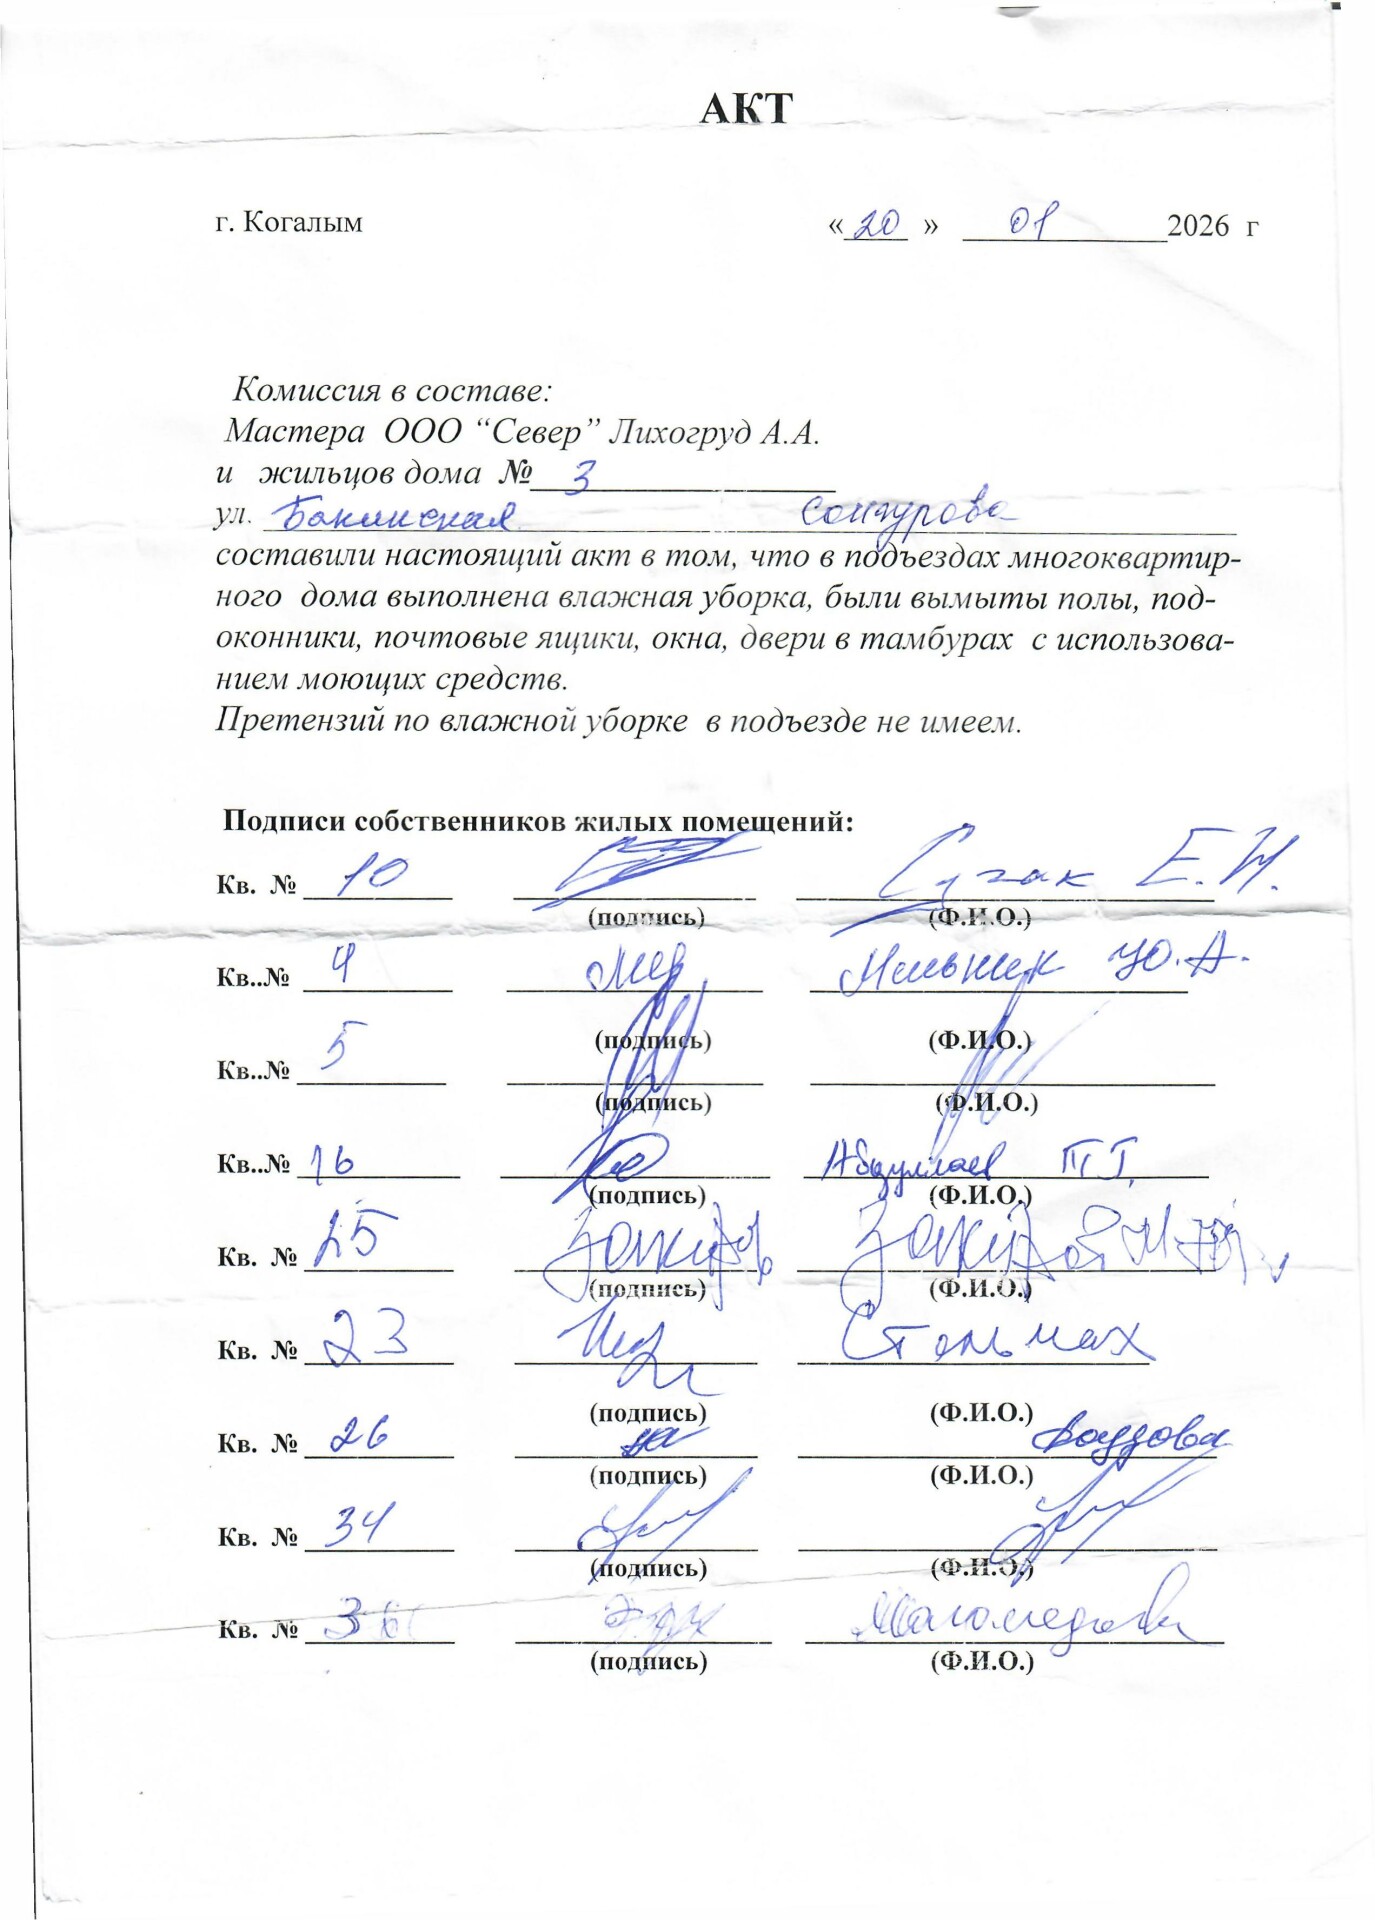 АКТ
г. Когалым «20» 01 2026 г
Комиссия в составе:
Мастера ООО “Север” Лихогруд А.А.
и жильцов дома № 3
ул. Бакинская
составили настоящий акт в том, что в подъездах многоквартир-
ного дома выполнена влажная уборка, были вымыты полы, под-
оконники, почтовые ящики, окна, двери в тамбурах с использова-
нием моющих средств.
Претензий по влажной уборке в подъезде не имеем.
Подписи собственников жилых помещений:
Кв. № 10 Сугак Е.И.
(подпись) (Ф.И.О.)
Кв..№ 4 Мельник Ю.А.
(подпись) (Ф.И.О.)
Кв..№ 5
(подпись) (Ф.И.О.)
Кв..№ 16 Абдуллаев
(подпись) (Ф.И.О.)
Кв. № 25
(подпись) (Ф.И.О.)
Кв. № 23 Стельмах
(подпись) (Ф.И.О.)
Кв. № 26 Даудова
(подпись) (Ф.И.О.)
Кв. № 34
(подпись) (Ф.И.О.)
Кв. № 36
(подпись) (Ф.И.О.)